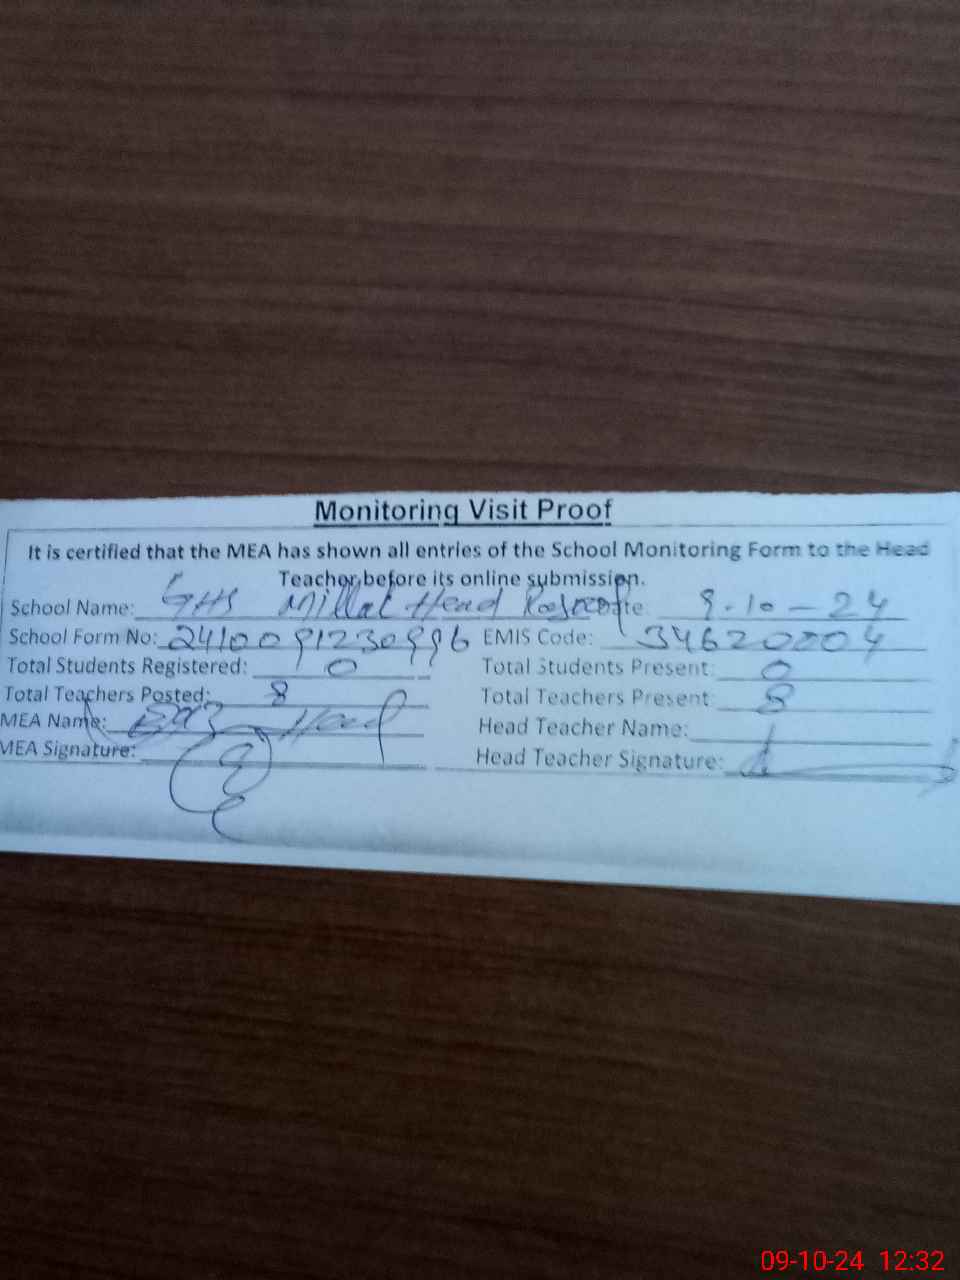 Monitoring Visit Proof
It is certified that the MEA has shown all entries of the School Monitoring Form to the Head
Teacher before its online submission.
School Name: GHS Millat Head Date 9-10-24
School Form No: 2410091230996 EMIS Code: 34620004
Total Students Registered: 0 Total Students Present: 0
Total Teachers Posted: 8 Total Teachers Present: 8
MEA Name: Head Teacher Name:
MEA Signature: Head Teacher Signature:
09-10-24 12:32